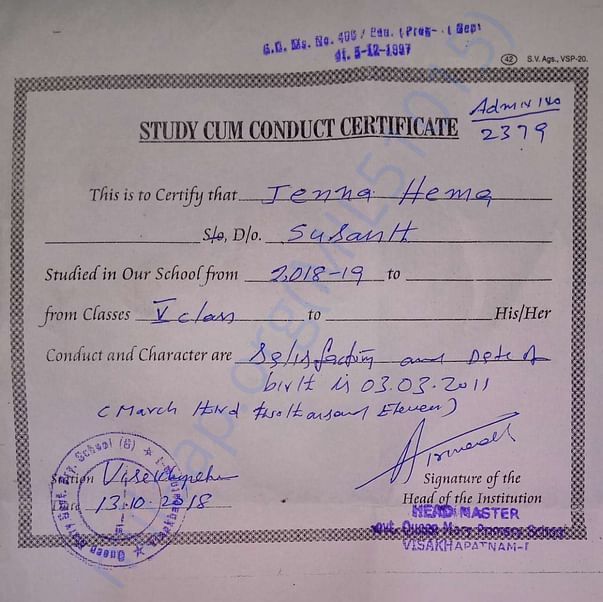 G.O. Ms. No. 400 / Edu. (Prog- I Dep)
dt. 5-12-1997
42 S.V. Ags., VSP-20.
Admn No
2379
STUDY CUM CONDUCT CERTIFICATE
This is to Certify that Jenna Hema
S/o, D/o. SusanH
Studied in Our School from 2018-19 to
from Classes V class to His/Her
Conduct and Character are Satisfactory and Date of
birth is 03.03.2011
(March third Eleven)
Station
Date 13.10.2018
Signature of the
Head of the Institution
HEAD MASTER
Govt. Queen Mary Primary School
VISAKHAPATNAM-1